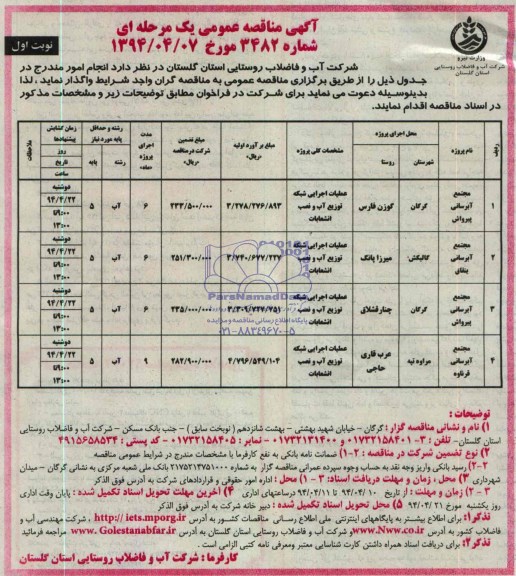 آگهی مناقصه عمومی یک مرحله ای
شماره ۳۴۸۲ مورخ ۱۳۹۴/۰۴/۰۷
نوبت اول
وزارت نیرو
شرکت آب و فاضلاب روستایی
استان گلستان
شرکت آب و فاضلاب روستایی استان گلستان در نظر دارد انجام امور مندرج در
جدول ذیل را از طریق برگزاری مناقصه عمومی به مناقصه گران واجد شرایط واگذار نماید ، لذا
بدینوسیله دعوت می نماید برای شرکت در فراخوان مطابق توضیحات زیر و مشخصات مذکور
در اسناد مناقصه اقدام نمایند.
ردیف | نام پروژه | محل اجرای پروژه | شهرستان | روستا | مشخصات کلی پروژه | مبلغ بر آورد اولیه «ریال» | مبلغ تضمین شرکت در مناقصه «ریال» | مدت اجرای پروژه «ماه» | رشته و حداقل پایه مورد نیاز | رشته | پایه | زمان گشایش پیشنهادها | روز | تاریخ | ساعت | ملاحظات
۱ | مجتمع آبرسانی پیرواش | گرگان | گوزن فارس | عملیات اجرایی شبکه توزیع آب و نصب انشعابات | ۳/۲۷۸/۲۷۶/۸۹۳ | ۲۳۳/۵۰۰/۰۰۰ | ۶ | آب | ۵ | دوشنبه ۹۴/۴/۲۲ ۹:۰۰تا ۱۳:۰۰
۲ | مجتمع آبرسانی ینقاق | گالیکش | میرزا پانک | عملیات اجرایی شبکه توزیع آب و نصب انشعابات | ۳/۷۴۰/۶۷۷/۲۲۷ | ۲۵۱/۳۰۰/۰۰۰ | ۶ | آب | ۵ | دوشنبه ۹۴/۴/۲۲ ۹:۰۰تا ۱۳:۰۰
۳ | مجتمع آبرسانی پیرواش | گرگان | چنارقشلاق | عملیات اجرایی شبکه توزیع آب و نصب انشعابات | ۳/۳۰۹/۷۴۷/۷۵۱ | ۲۳۵/۰۰۰/۰۰۰ | ۶ | آب | ۵ | دوشنبه ۹۴/۴/۲۲ ۹:۰۰تا ۱۳:۰۰
۴ | مجتمع آبرسانی قرناوه | مراوه تپه | عرب قاری حاجی | عملیات اجرایی شبکه توزیع آب و نصب انشعابات | ۴/۷۹۶/۵۴۹/۱۰۴ | ۲۸۴/۹۰۰/۰۰۰ | ۹ | آب | ۵ | دوشنبه ۹۴/۴/۲۲ ۹:۰۰تا ۱۳:۰۰
ParsNamadData
پایگاه اطلاع رسانی مناقصه و مزایده
۰۲۱-۸۸۳۴۹۶۷۰-۵
توضیحات :
۱) نام و نشانی مناقصه گزار : گرگان – خیابان شهید بهشتی – بهشت شانزدهم (نوبخت سابق ) – جنب بانک مسکن – شرکت آب و فاضلاب روستایی
استان گلستان- تلفن : ۳-۰۱۷۳۲۱۵۸۴۰۱ و ۰۱۷۳۲۱۳۱۴۰۰ – نمابر : ۰۱۷۳۲۱۵۸۴۰۵ - کد پستی : ۴۹۱۵۶۵۸۵۳۴
۲) نوع تضمین شرکت در مناقصه : ۱-۲) ضمانت نامه بانکی به نفع کارفرما با مشخصات مندرج در شرایط عمومی مناقصه
۲-۲) رسید بانکی واریز وجه نقد به حساب وجوه سپرده عمرانی مناقصه گزار به شماره ۲۱۷۵۲۱۴۷۵۱۰۰۰ بانک ملی شعبه مرکزی به نشانی گرگان – میدان
شهرداری ۳) محل، زمان و مهلت دریافت اسناد: ۱-۳ ) محل : اداره امور حقوقی و قراردادهای شرکت به آدرس فوق الذکر
۲-۳ ) زمان و مهلت : از تاریخ ۹۴/۰۴/۱۰ تا ۹۴/۰۴/۱۱ درساعتهای اداری ۴) آخرین مهلت تحویل اسناد تکمیل شده : پایان وقت اداری
روز یکشنبه مورخ ۹۴/۰۴/۲۱ ۵) محل تحویل اسناد تکمیل شده : دبیر خانه شرکت به آدرس فوق الذکر
تذکر۱: برای اطلاع بیشتر به پایگاههای اینترنتی ملی اطلاع رسانی مناقصات کشور به آدرس http:// iets.mporg.ir ، شرکت مهندسی آب و
فاضلاب کشور به آدرس www.Nww.co.ir و شرکت آب و فاضلاب روستایی استان به آدرس www. Golestanabfar.ir مراجعه فرمائید
تذکر۲: برای دریافت اسناد همراه داشتن کارت شناسایی معتبر ومعرفی نامه کتبی الزامی است .
کارفرما : شرکت آب و فاضلاب روستایی استان گلستان